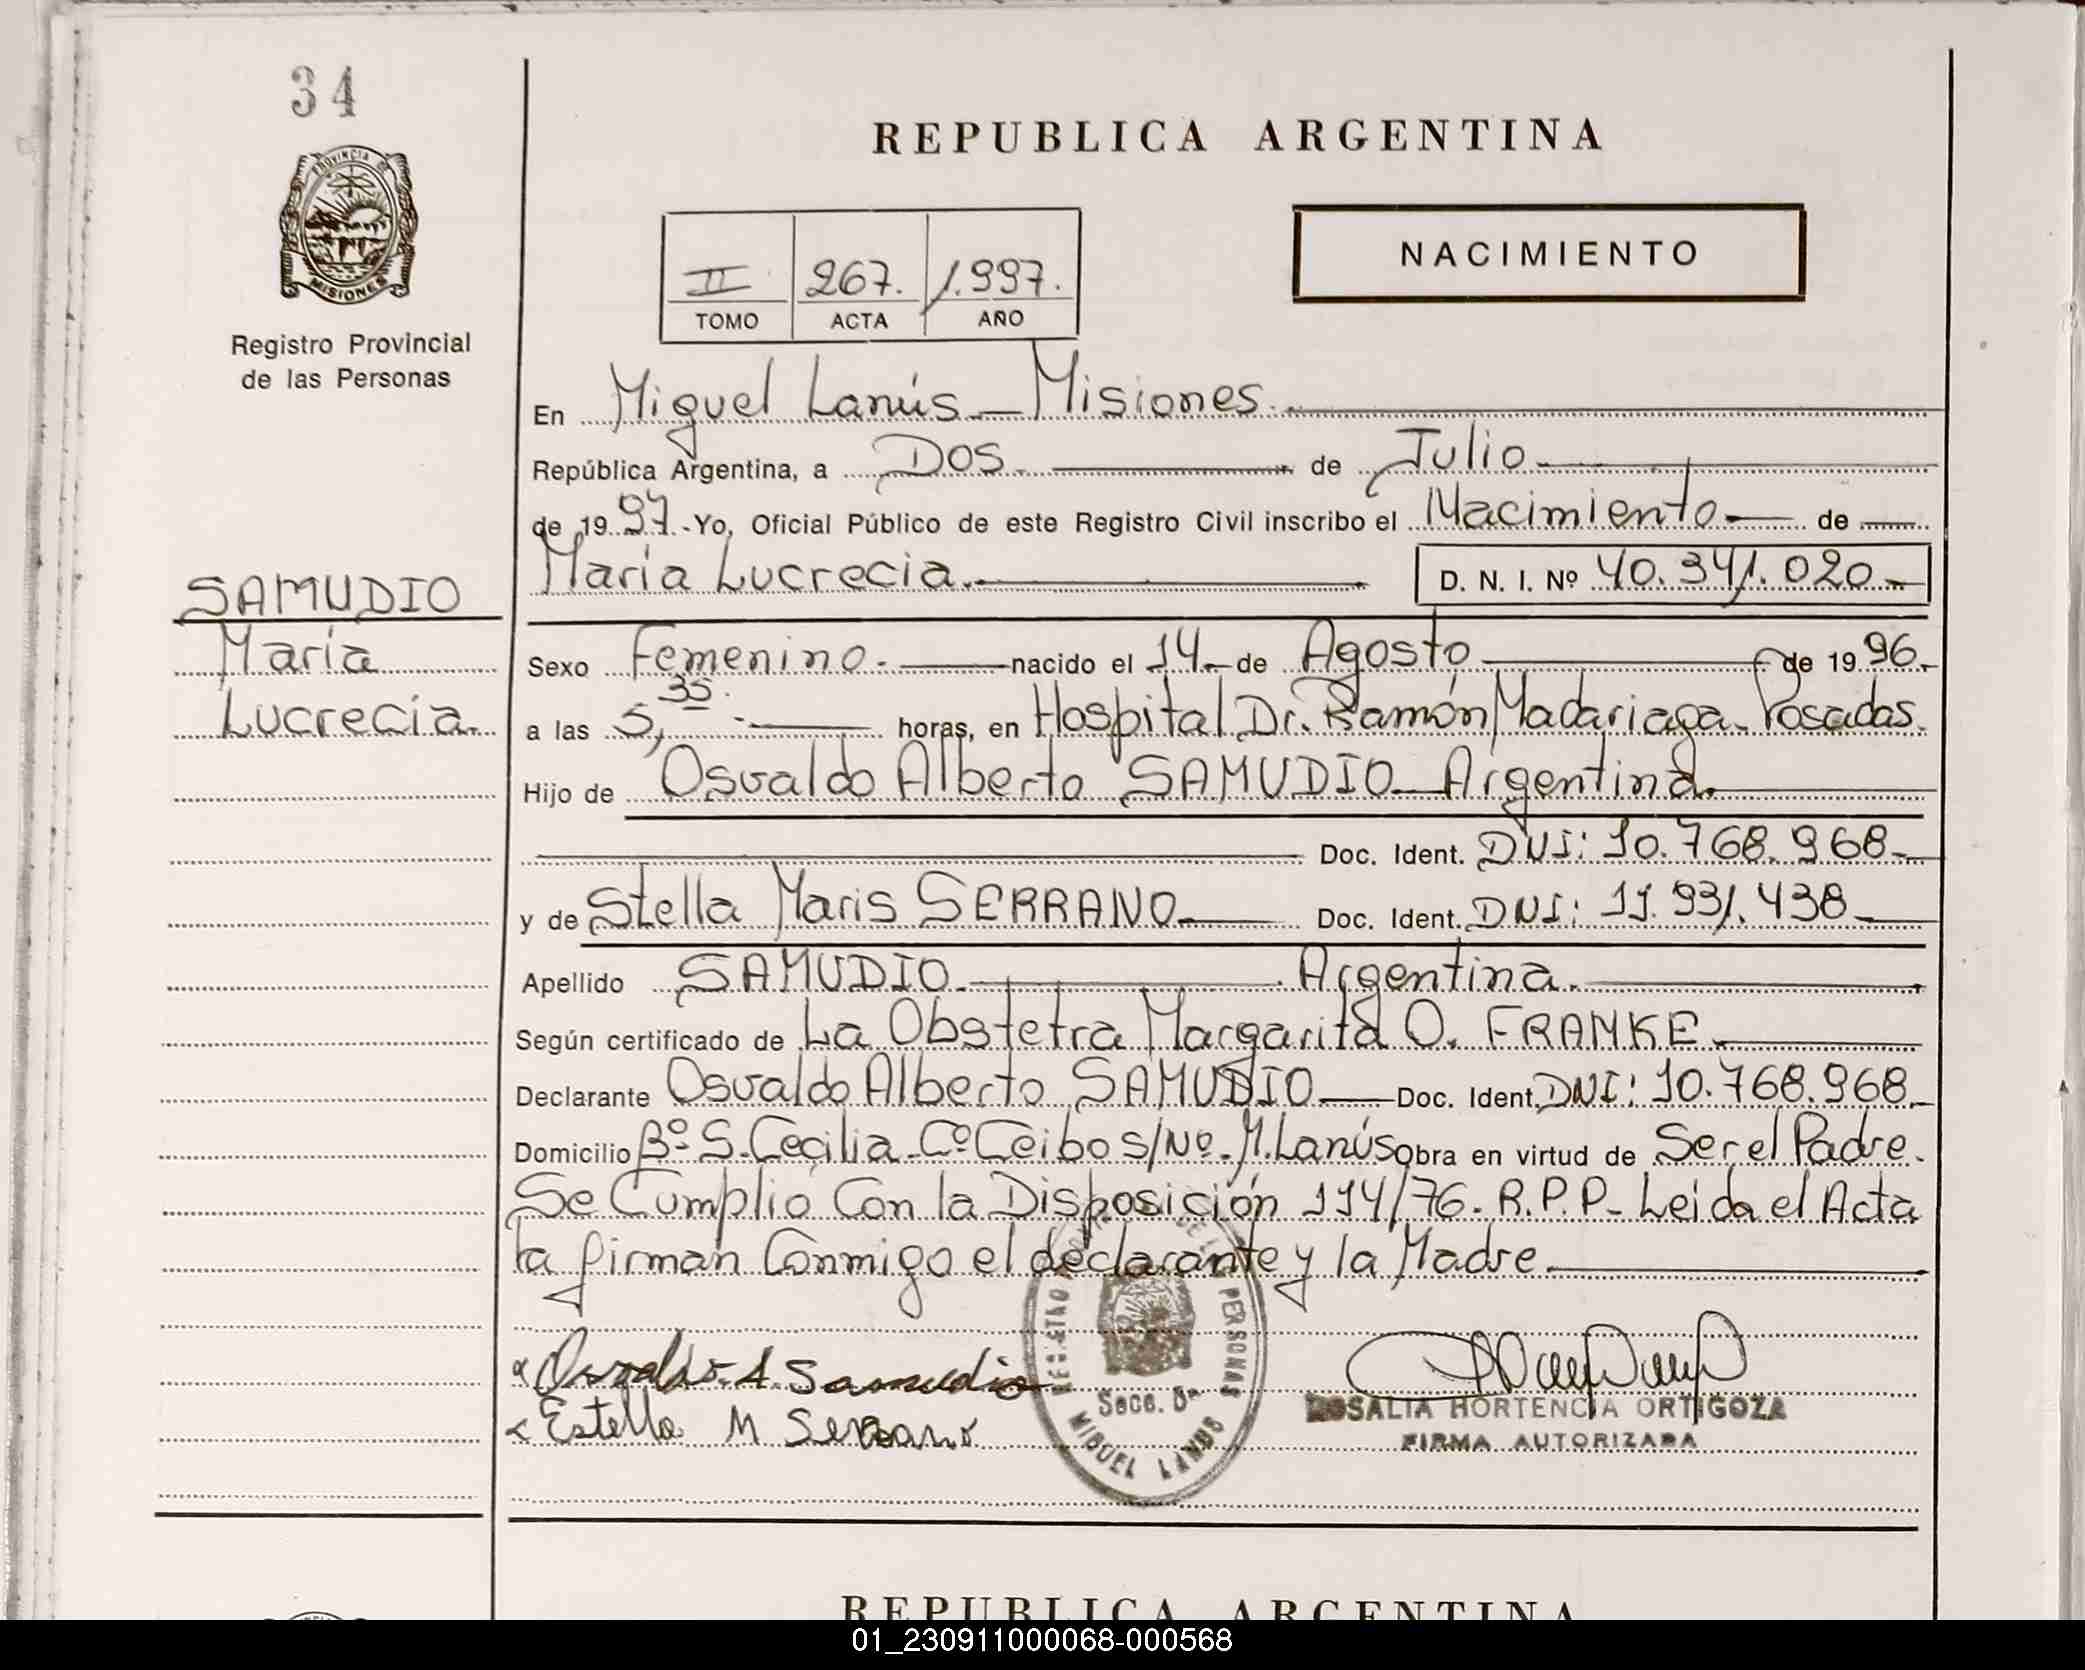 34
PROVINCIA DE
MISIONES
Registro Provincial
de las Personas
REPUBLICA ARGENTINA
NACIMIENTO
II 267. 1.997.
TOMO ACTA AÑO
En Miguel Lanús - Misiones.
República Argentina, a Dos. de Julio
de 19 97.-Yo, Oficial Público de este Registro Civil inscribo el Nacimiento de
María Lucrecia. D. N. I. Nº 40.341.020.-
SAMUDIO
María
Lucrecia.
Sexo Femenino. nacido el 14.- de Agosto de 19 96.-
a las 5,35 horas, en Hospital Dr. Ramón Madariaga - Posadas.
Hijo de Osvaldo Alberto SAMUDIO - Argentina.
Doc. Ident. DNI: 10.768.968.-
y de Stella Maris SERRANO Doc. Ident. DNI: 11.931.438.
Apellido SAMUDIO. Argentina.
Según certificado de La Obstetra Margarita O. FRANKE.
Declarante Osvaldo Alberto SAMUDIO Doc. Ident. DNI: 10.768.968.-
Domicilio Bº S. Cecilia - Cº Ceibo s/Nº. M. Lanús obra en virtud de Ser el Padre.
Se Cumplió Con la Disposición 114/76. R.P.P- Leida el Acta
la firman Conmigo el declarante y la Madre
Osvaldo A Samudio
Estella M Serrano
PERSONAS
Secc. 8ª
MIGUEL LANUS
ROSALIA HORTENCIA ORTIGOZA
FIRMA AUTORIZADA
REPUBLICA ARGENTINA
01_230911000068-000568